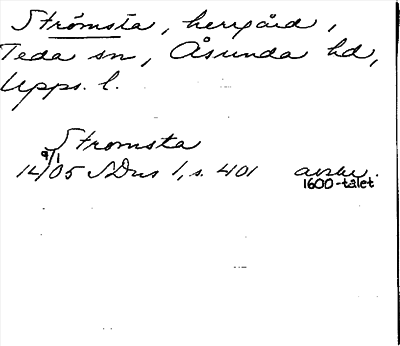 Strömsta, herrgård,
Teda sn, Åsunda hd,
Upps. l.
Stromsta
9/1
1405 SDns 1, s. 401 avskr.
1600-talet